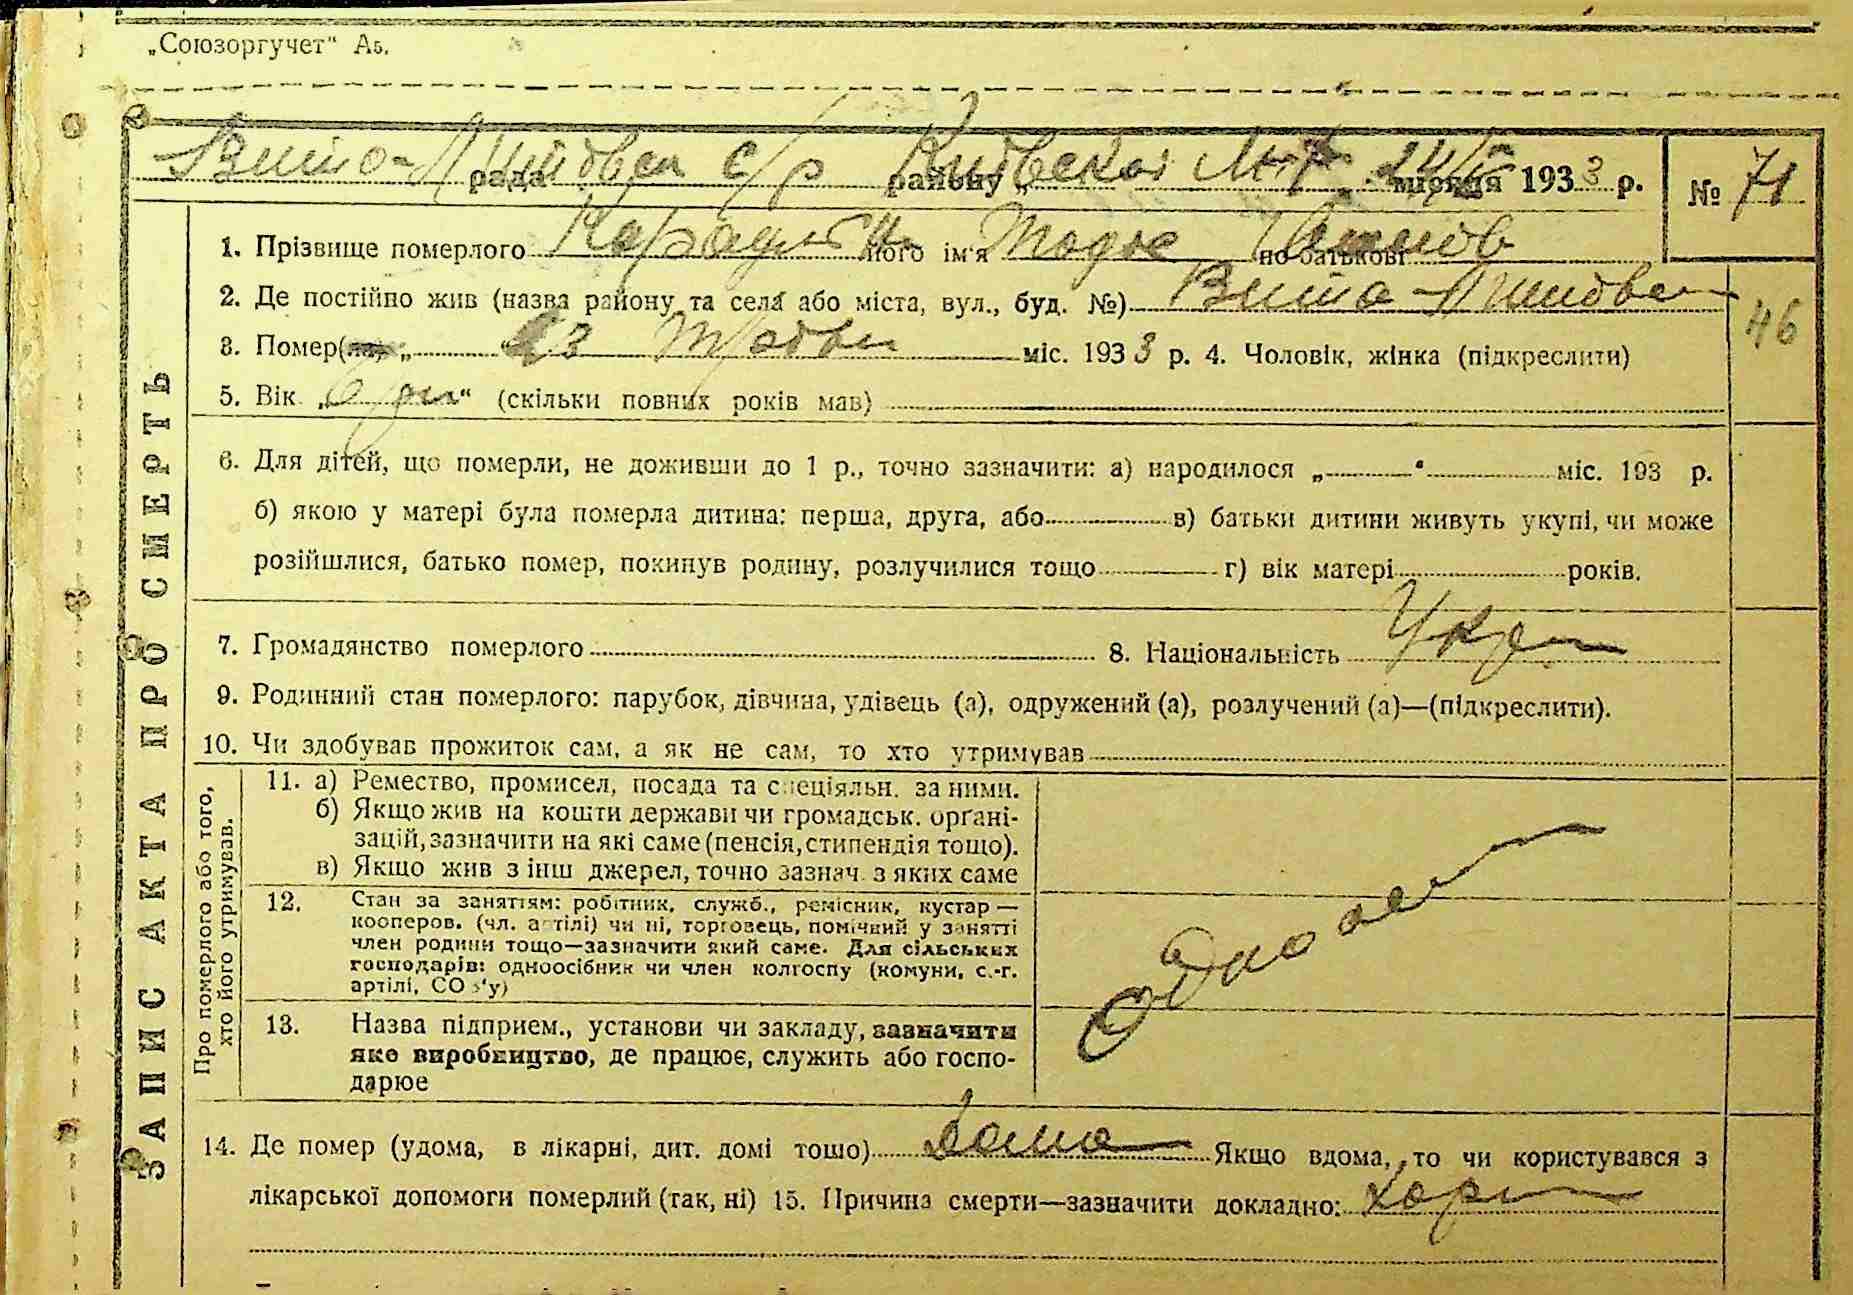 „Союзоргучет“ А5.
Вито-Литовск с/р рада району „ “ місяця 1933 р. № 71
1. Прізвище померлого його ім'я по батькові
2. Де постійно жив (назва району та села або міста, вул., буд. №) Вита-Литовск
46
3. Помер(ла) „ “ 23 Травня міс. 1933 р. 4. Чоловік, жінка (підкреслити)
5. Вік „ “ (скільки повних років мав)
6. Для дітей, що померли, не доживши до 1 р., точно зазначити: а) народилося „ “ міс. 193 р.
б) якою у матері була померла дитина: перша, друга, або в) батьки дитини живуть укупі, чи може
розійшлися, батько помер, покинув родину, розлучилися тощо г) вік матері років.
7. Громадянство померлого 8. Національність Укр
9. Родинний стан померлого: парубок, дівчина, удівець (а), одружений (а), розлучений (а)—(підкреслити).
10. Чи здобував прожиток сам, а як не сам, то хто утримував
ЗАПИС АКТА ПРО СМЕРТЬ
Про померлого або того, хто його утримував.
11. а) Ремество, промисел, посада та спеціяльн. за ними.
б) Якщо жив на кошти держави чи громадськ. орґані-
зацій, зазначити на які саме (пенсія, стипендія тощо).
в) Якщо жив з інш джерел, точно зазнач. з яких саме
12. Стан за заняттям: робітник, служб., ремісник, кустар —
кооперов. (чл. артілі) чи ні, торговець, помічний у занятті
член родини тощо—зазначити який саме. Для сільських
господарів: одноосібник чи член колгоспу (комуни, с.-г.
артілі, СОЗ'у)
13. Назва підприєм., установи чи закладу, зазначити
яке виробництво, де працює, служить або госпо-
дарює
14. Де помер (удома, в лікарні, дит. домі тощо) Дома Якщо вдома, то чи користувався з
лікарської допомоги померлий (так, ні) 15. Причина смерти—зазначити докладно: